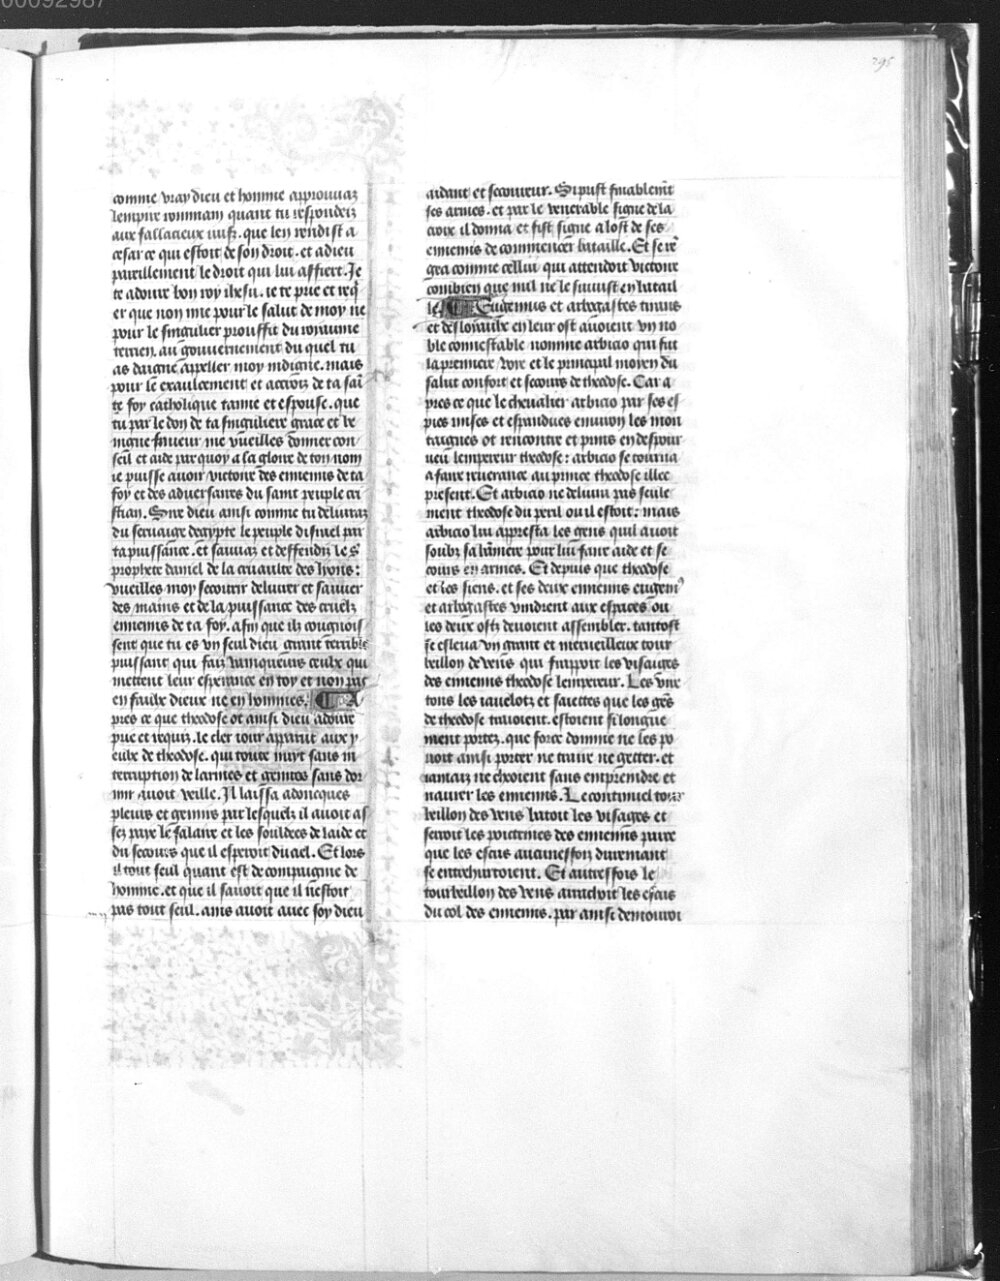 00092987
295
comme vray dieu et homme approuuaz
lempire rommain quant tu respondeiz
aux fallacieux iuifz. que len rendist a
cesar ce qui estoit de son droit. et a dieu
pareillement le droit qui lui affiert. Je
te adoure bon roy ihesu. ie te prie et req̄
er que non mie pour le salut de moy ne
pour le singulier prouffit du royaume
terrien. au gouuernement du quel tu
as daigne appeller moy indigne. mais
pour le exaulcement et accrois de ta sai
te foy catholique tamie et espouse. que
tu par le don de ta singuliere grace et be
nigne faueur me vueilles donner con
seil et aide par quoy a la gloire de ton nom
ie puisse auoir victoire des ennemis de ta
foy et des aduersaires du saint peuple cri
stian. Sire dieu ainsi comme tu deliuraz
du seruaige degypte le peuple disrael par
ta puissance. et sauuaz et deffendiz le s̄
prophete daniel de la cruaulte des lyons:
vueilles moy secourir deliurer et sauuer
des mains et de la puissance des cruelz
ennemis de ta foy. afin que ilz congnois
sent que tu es vn seul dieu grant terrible
puissant qui faiz vainqueurs ceulx qui
mettent leur esperance en toy et non pas
en faulx dieux ne en hommes. A
pres ce que theodose ot ainsi dieu adoure
prie et requiz. le cler iour apparut aux y
eulx de theodose. qui toute nuyt sans in
terruption de larmes et gemirs sans dor
mir auoit veille. Il laissa adoncques
pleurs et gemirs par lesquelz il auoit as
sez paye le salaire et les souldees de laide et
du secours que il esperoit du ciel. Et lors
il tout seul quant est de compaignie de
homme. et que il sauoit que il nestoit
pas tout seul. ains auoit auec soy dieu
aidant et secoureur. Si prist finablemt̄
ses armes. et par le venerable signe de la
croix il donna et fist signe a lost de ses
ennemis de commencer bataille. Et se re
gea comme cellui qui attendoit victoire
combien que nul ne le suiuist en batail
le. Eugenius et arbogastes tirans
et desloyaulx en leur ost auoient vn no
ble connestable nomme arbicio qui fut
la premiere voye et le principal moyen du
salut confort et secours de theodose. Car a
pres ce que le cheualier arbicio par ses es
pies mises et espandues enuiron les mon
taignes ot rencontre et prins en despour
ueu lempereur theodose: arbicio se tourna
a faire reuerance au prince theodose illec
present. Et arbicio ne deliura pas seule
ment theodose du peril ou il estoit: mais
arbicio lui appresta les gens quil auoit
soubz sa baniere pour lui faire aide et se
cours en armes. Et depuis que theodose
et les siens. et ses deux ennemis eugeni9
et arbogastes vindrent aux espaces ou
les deux ostz deuoient assembler. tantost
se esleua vn grant et merueilleux tour
beillon de vens qui frappoit les visaiges
des ennemis theodose lempereur. Les vire
tons les iauelotz et saiettes que les gēs
de theodose tiroient. estoient si longue
ment portez. que force domme ne les po
uoit ainsi porter ne traire ne getter. et
iamaiz ne cheoient sans emprendre et
naurer les ennemis. Le continuel tour
beillon des vens batoit les visages et
feroit les poictrines des ennemis parce
que les escus aucunesfoiz durement
se entrehurtoient. Et autresfois le
tourbeillon des vens arrachoit les escus
du col des ennemis. par ainsi demouroi